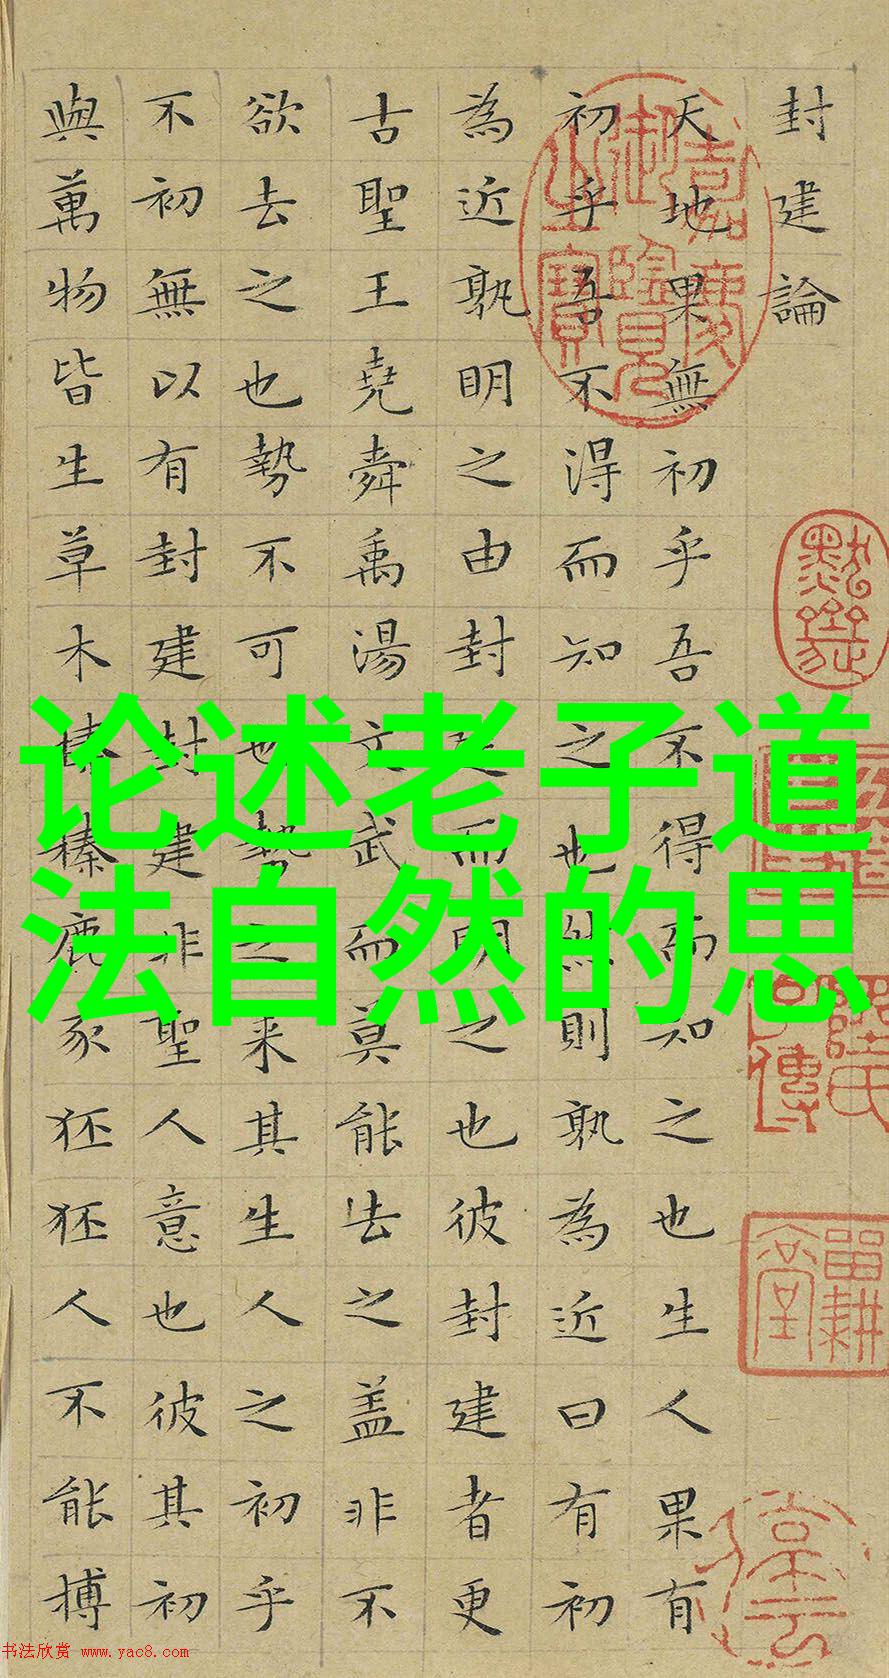 封建論
天地果無初乎吾不得而知之也生人果有
初乎吾不得而知之也然則孰為近曰有初
為近孰明之由封建而明之也彼封建者更
古聖王堯舜禹湯文武而莫能去之盖非不
欲去之也勢不可也勢之来其生人之初乎
不初無以有封建封建非聖人意也彼其初
與萬物皆生草木榛榛鹿豕狉狉人不能搏
嘉慶御覽之寶
论述老子道
法自然的思
书法欣赏 www.yac8.com